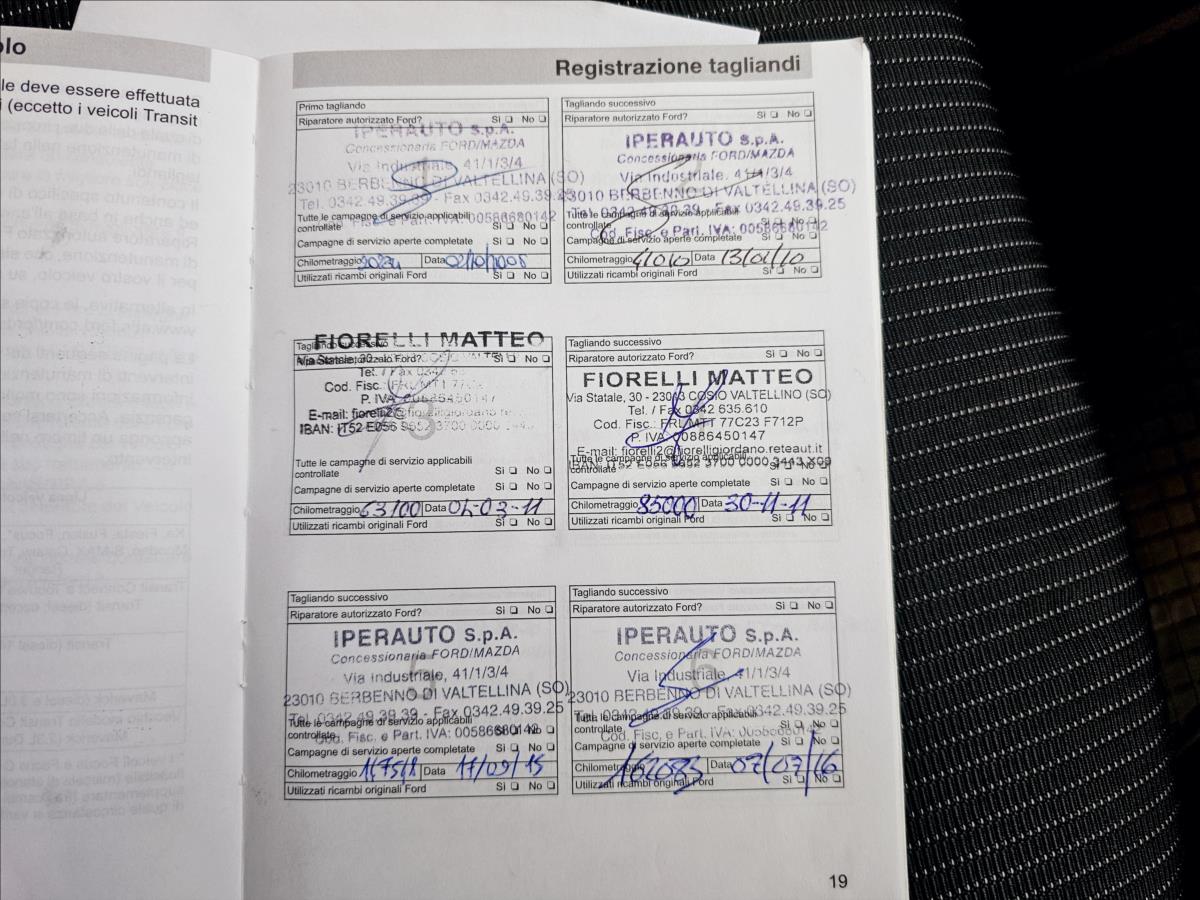 olo
le deve essere effettuata
i (eccetto i veicoli Transit
Registrazione tagliandi
Primo tagliando
Riparatore autorizzato Ford? Sì ❏ No ❏
IPERAUTO S.p.A.
Concessionaria FORD/MAZDA
Via Industriale, 41/1/3/4
23010 BERBENNO DI VALTELLINA (SO)
Tel. 0342.49.39.39 - Fax 0342.49.39.25
Tutte le campagne di servizio applicabili
controllate Sì ❏ No ❏
Fisc. e Part. IVA: 00586680142
Campagne di servizio aperte completate Sì ❏ No ❏
Chilometraggio Data 02/10/2008
Utilizzati ricambi originali Ford Sì ❏ No ❏
Tagliando successivo
Riparatore autorizzato Ford? Sì ❏ No ❏
IPERAUTO S.p.A.
Concessionaria FORD/MAZDA
Via Industriale, 41/1/3/4
23010 BERBENNO DI VALTELLINA (SO)
Tel. 0342.49.39.39 - Fax 0342.49.39.25
Tutte le campagne di servizio applicabili
controllate Sì ❏ No ❏
Cod. Fisc. e Part. IVA: 00586680142
Campagne di servizio aperte completate Sì ❏ No ❏
Chilometraggio 41010 Data 13/01/10
Utilizzati ricambi originali Ford Sì ❏ No ❏
FIORELLI MATTEO
Tagliando successivo
Via Statale, 30
Riparatore autorizzato Ford? Sì ❏ No ❏
Tel. / Fax 0342
Cod. Fisc.:
P. IVA 00886450147
E-mail: fiorelli2@fiorelligiordano
IBAN: IT52 E056 9652 3700 0000
3
Tutte le campagne di servizio applicabili
controllate Sì ❏ No ❏
Campagne di servizio aperte completate Sì ❏ No ❏
Chilometraggio 63100 Data 04-03-11
Utilizzati ricambi originali Ford Sì ❏ No ❏
Tagliando successivo
Riparatore autorizzato Ford? Sì ❏ No ❏
FIORELLI MATTEO
Via Statale, 30 - 23013 COSIO VALTELLINO (SO)
Tel. / Fax 0342 635.610
Cod. Fisc.: FRL MTT 77C23 F712P
P. IVA 00886450147
E-mail: fiorelli2@fiorelligiordano.reteaut.it
Tutte le campagne di servizio applicabili
IBAN: IT52 E056 9652 3700 0000 3443 X09
controllate Sì ❏ No ❏
Campagne di servizio aperte completate Sì ❏ No ❏
Chilometraggio 85000 Data 30-11-11
Utilizzati ricambi originali Ford Sì ❏ No ❏
Tagliando successivo
Riparatore autorizzato Ford? Sì ❏ No ❏
IPERAUTO S.p.A.
Concessionaria FORD/MAZDA
5
Via industriale, 41/1/3/4
23010 BERBENNO DI VALTELLINA (SO)
Tel. 0342.49.39.39 - Fax 0342.49.39.25
Tutte le campagne di servizio applicabili
controllate Sì ❏ No ❏
Cod. Fisc. e Part. IVA: 00586680142
Campagne di servizio aperte completate Sì ❏ No ❏
Chilometraggio Data 17/09/15
Utilizzati ricambi originali Ford Sì ❏ No ❏
Tagliando successivo
Riparatore autorizzato Ford? Sì ❏ No ❏
IPERAUTO S.p.A.
Concessionaria FORD/MAZDA
6
Via Industriale, 41/1/3/4
23010 BERBENNO DI VALTELLINA (SO)
Tel. 0342.49.39.39 - Fax 0342.49.39.25
Tutte le campagne di servizio applicabili
controllate Sì ❏ No ❏
Cod. Fisc. e Part. IVA: 00586680142
Campagne di servizio aperte completate Sì ❏ No ❏
Chilometraggio 162083 Data 07/07/16
Utilizzati ricambi originali Ford Sì ❏ No ❏
19